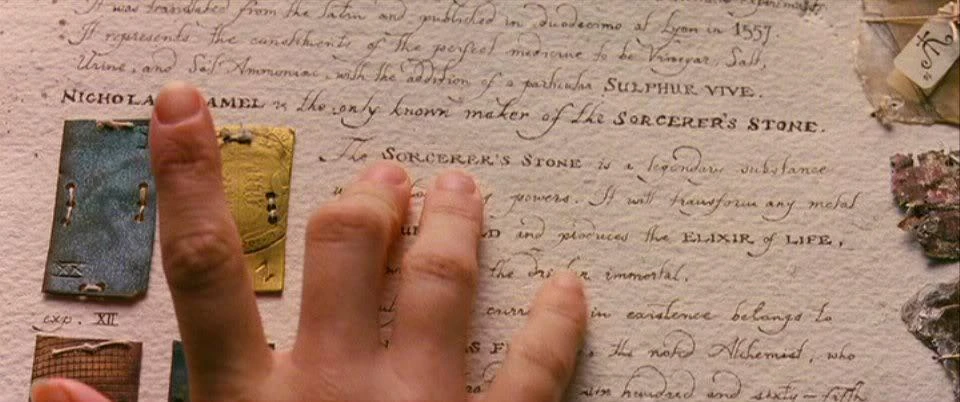 It was translated from the Latin and published in duodecimo at Lyon in 1557.
It represents the constituents of the perfect medicine to be Vinegar, Salt,
Urine, and Sal Ammoniac, with the addition of a particular SULPHUR VIVE.
NICHOLA AMEL is the only known maker of the SORCERER'S STONE.
The SORCERER'S STONE is a legendary substance
powers. It will transform any metal
LD and produces the ELIXIR of LIFE,
the drinker immortal.
in existence belongs to
the noted Alchemist, who
hundred and sixty-fifth
XX
exp. XII